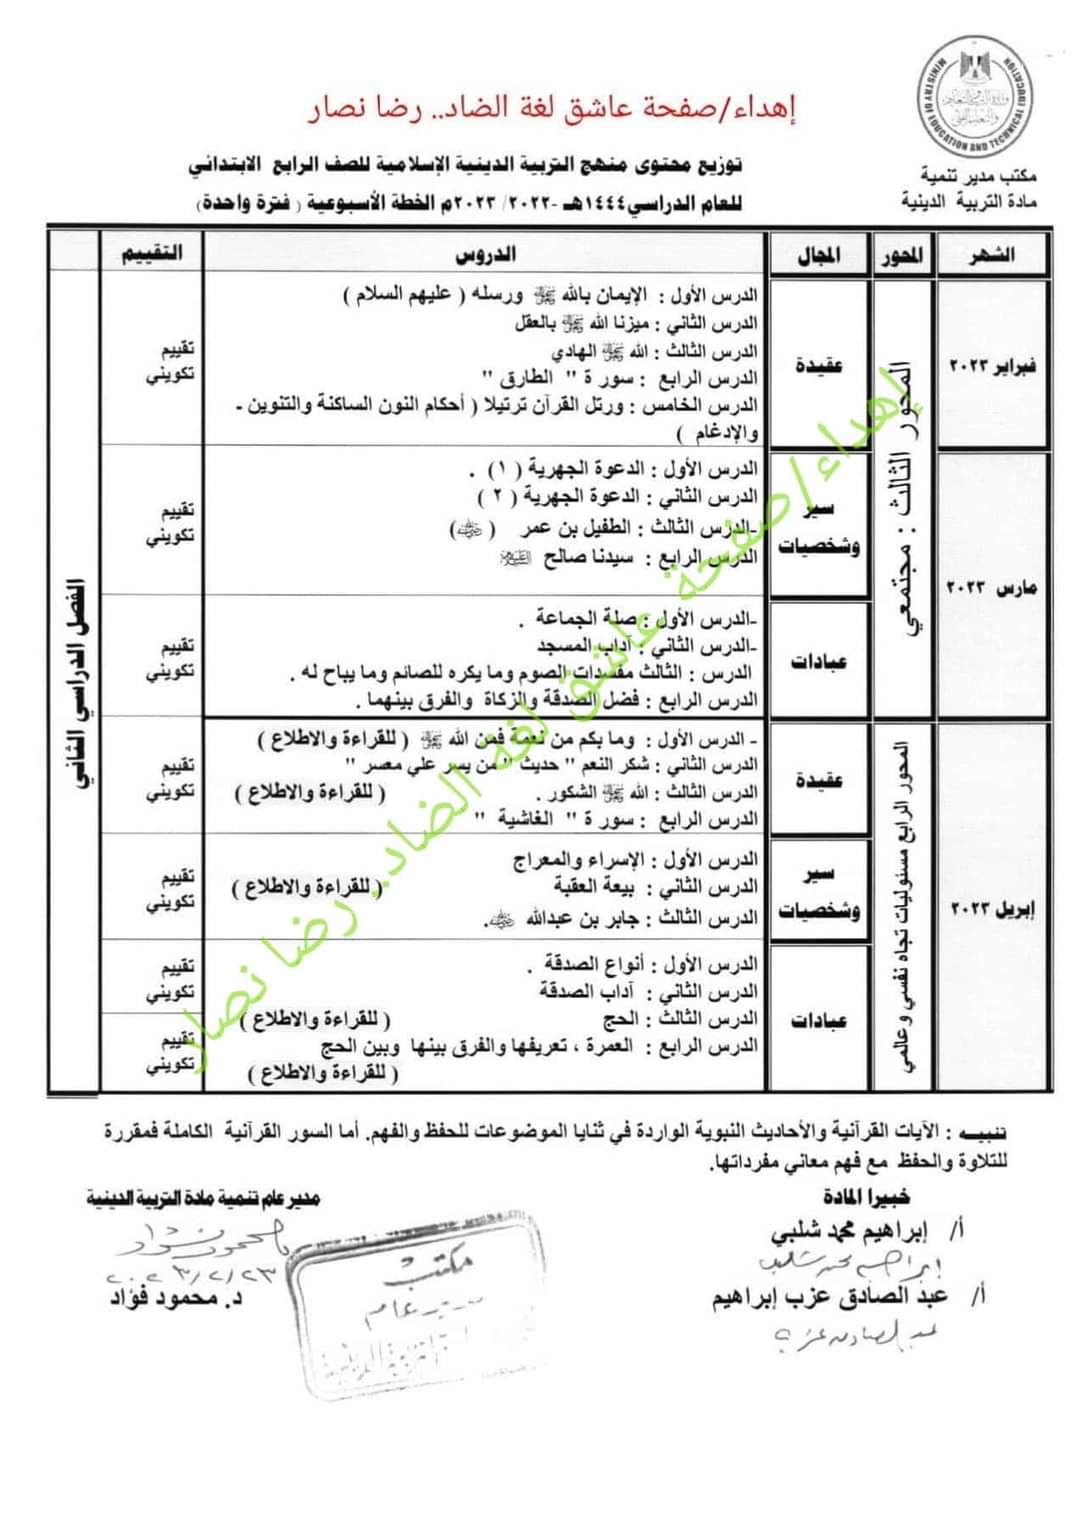 إهداء/صفحة عاشق لغة الضاد.. رضا نصار
MINISTRY OF EDUCATION AND TECHNICAL EDUCATION
مكتب مدير تنمية
مادة التربية الدينية
توزيع محتوى منهج التربية الدينية الإسلامية للصف الرابع الابتدائي
للعام الدراسي ١٤٤٤هـ -٢٠٢٢/ ٢٠٢٣م الخطة الأسبوعية ( فترة واحدة)
الشهر المحور المجال الدروس التقييم
الفصل الدراسي الثاني
فبراير ٢٠٢٣
المحور الثالث : مجتمعي
عقيدة
الدرس الأول : الإيمان بالله ﷻ ورسله ( عليهم السلام )
الدرس الثاني : ميزنا الله ﷻ بالعقل
الدرس الثالث : الله ﷻ الهادي
الدرس الرابع : سورة " الطارق "
الدرس الخامس : ورتل القرآن ترتيلا ( أحكام النون الساكنة والتنوين -
والإدغام )
تقييم
تكويني
مارس ٢٠٢٣
سير
وشخصيات
الدرس الأول : الدعوة الجهرية ( ١ ) .
الدرس الثاني : الدعوة الجهرية ( ٢ )
-الدرس الثالث : الطفيل بن عمر ( ﵁ )
الدرس الرابع : سيدنا صالح ﵇
تقييم
تكويني
عبادات
-الدرس الأول : صلة الجماعة .
-الدرس الثاني : آداب المسجد
الدرس : الثالث مفسدات الصوم وما يكره للصائم وما يباح له .
الدرس الرابع : فضل الصدقة والزكاة والفرق بينهما .
تقييم
تكويني
إبريل ٢٠٢٣
المحور الرابع مسئوليات تجاه نفسي وعالمي
عقيدة
- الدرس الأول : وما بكم من نعمة فمن الله ﷻ ( للقراءة والاطلاع )
الدرس الثاني : شكر النعم " حديث " من يسر علي معسر "
الدرس الثالث : الله ﷻ الشكور . ( للقراءة والاطلاع )
الدرس الرابع : سورة " الغاشية "
تقييم
تكويني
سير
وشخصيات
الدرس الأول : الإسراء والمعراج
الدرس الثاني : بيعة العقبة ( للقراءة والاطلاع )
الدرس الثالث : جابر بن عبدالله ﵁.
تقييم
تكويني
عبادات
الدرس الأول : أنواع الصدقة .
الدرس الثاني : آداب الصدقة
الدرس الثالث : الحج ( للقراءة والاطلاع )
الدرس الرابع : العمرة ، تعريفها والفرق بينها وبين الحج
( للقراءة والاطلاع )
تقييم
تكويني
تقييم
تكويني
إهداء/صفحة عاشق لغة الضاد.. رضا نصار
تنبيـه : الآيات القرآنية والأحاديث النبوية الواردة في ثنايا الموضوعات للحفظ والفهم. أما السور القرآنية الكاملة فمقررة
للتلاوة والحفظ مع فهم معاني مفرداتها.
خبيرا المادة
أ/ إبراهيم محمد شلبي
إبراهيم محمد شلبي
أ/ عبد الصادق عزب إبراهيم
عبد الصادق عزب
مدير عام تنمية مادة التربية الدينية
٢٠٢٣/٢/٢٣
د. محمود فؤاد
مكتب
مدير عام